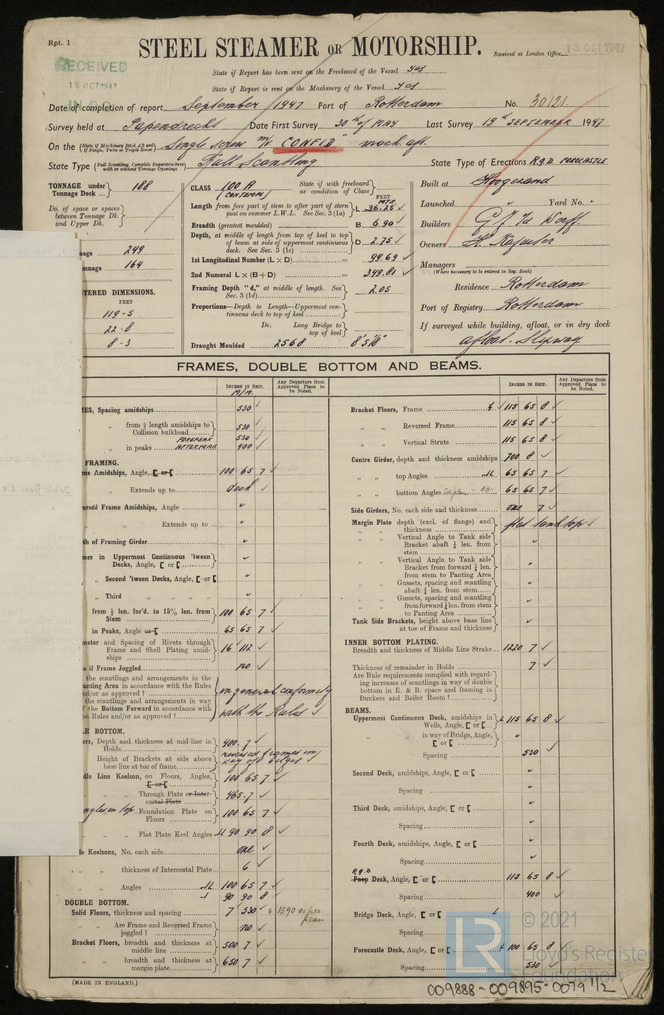 Rpt. 1
STEEL STEAMER OR MOTORSHIP.
Received at London Office 15 OCT 1947
RECEIVED
15 OCT 1947
State if Report has been sent on the Freeboard of the Vessel yes
State if Report is sent on the Machinery of the Vessel yes
Date of completion of report September 1947 Port of Rotterdam No. 30121
Survey held at Papendrecht Date First Survey 30th of MAY Last Survey 19th SEPTEMBER 1947
On the Single screw m/v "CONFID" mach. aft.
State Type Full Scantling State Type of Erections R.Q.D. FORECASTLE
TONNAGE under Tonnage Deck 188
Do. of space or spaces between Tonnage Dk. and Upper Dk.
249
164
TERED DIMENSIONS.
FEET
119-5
22-8
8-3
CLASS 100 A State if with freeboard as condition of Class
Length from fore part of stem to after part of stern post on summer L.W.L. See Sec. 3 (1a) L 36.25
Breadth (greatest moulded) B 6.90
Depth, at middle of length from top of keel to top of beam at side of uppermost continuous deck. See Sec. 3 (1c) D 2.75
1st Longitudinal Number (L × D) 99.69
2nd Numeral L × (B + D) 349.81
Framing Depth "d," at middle of length. See Sec. 3 (1d) 2.05
Proportions—Depth to Length—Uppermost continuous deck to top of keel
Do. Long Bridge to top of keel
Draught Moulded 2568
Built at Hoogezand
Launched Yard No. -
Builders
Owners
Managers
(Where necessary to be entered in Reg. Book)
Residence Rotterdam
Port of Registry Rotterdam
If surveyed while building, afloat, or in dry dock
afloat. Slipway
FRAMES, DOUBLE BOTTOM AND BEAMS.
INCHES IN SHIP.
Any Departure from Approved Plans to be Noted.
INCHES IN SHIP.
Any Departure from Approved Plans to be Noted.
ES, Spacing amidships 530
from ⅗ length amidships to Collision bulkhead 530
in peaks FOREPEAK 530 AFTERPEAK 400
FRAMING.
me Amidships, Angle, [ or [ 100 65 7
Extends up to deck
ersed Frame Amidships, Angle "
Extends up to "
th of Framing Girder "
mes in Uppermost Continuous 'tween Decks, Angle, [ or [ "
Second 'tween Decks, Angle, [ or [ "
Third "
from ⅗ len. for'd. to 15% len. from Stem 100 65 7
in Peaks, Angle or [ 65 65 7
meter and Spacing of Rivets through Frame and Shell Plating amidships 16 112
e if Frame Joggled no
the scantlings and arrangements in the anting Area in accordance with the Rules and/or as approved ?
the scantlings and arrangements in way of the Bottom Forward in accordance with the Rules and/or as approved ?
in general conformity with the Rules
LE BOTTOM.
ors, Depth and thickness at mid-line in Holds 400 7
Height of Brackets at side above base line at toe of frame
dle Line Keelson, on Floors, Angles, [ or [ 100 65 7
Through Plate or Intercostal Plate 465.7
angles on top Foundation Plate on Floors 100 65 7
Flat Plate Keel Angles 90 90 8
de Keelsons, No. each side one
thickness of Intercostal Plate 6
Angles 100 65 7
90 90 8
DOUBLE BOTTOM.
Solid Floors, thickness and spacing 7 530 & 1590 as per plan
Are Frame and Reversed Frame joggled ? no
Bracket Floors, breadth and thickness at middle line 500 7
breadth and thickness at margin plate 650 7
Bracket Floors, Frame 115 65 8
Reversed Frame 115 65 8
Vertical Struts 115 65 8
Centre Girder, depth and thickness amidships 700 8
top Angles 65 65 7
bottom Angles 65 65 7
Side Girders, No. each side and thickness one 7
Margin Plate depth (excl. of flange) and thickness flat tank top
Vertical Angle to Tank side Bracket abaft ¼ len. from stem "
Vertical Angle to Tank side Bracket from forward ¼ len. from stem to Panting Area "
Gussets, spacing and scantling abaft ¼ len. from stem "
Gussets, spacing and scantling from forward ¼ len. from stem to Panting Area "
Tank Side Brackets, height above base line at toe of Frame and thickness "
INNER BOTTOM PLATING.
Breadth and thickness of Middle Line Strake 1220 7
Thickness of remainder in Holds 7
Are Rule requirements complied with regarding increases of scantlings in way of double bottom in E. & B. space and framing in Bunkers and Boiler Room ? "
BEAMS.
Uppermost Continuous Deck, amidships in Wells, Angle, [ or [ 115 65 8
in way of Bridge, Angle, [ or [ "
Spacing 530
Second Deck, amidships, Angle, [ or [ "
Spacing "
Third Deck, amidships, Angle, [ or [ "
Spacing "
Fourth Deck, amidships, Angle, [ or [ "
Spacing "
R.Q.D. Poop Deck, Angle, [ or [ 115 65 8
Spacing 400
Bridge Deck, Angle, [ or [
Spacing
Forecastle Deck, Angle, [ or [ 100 65 8
Spacing 530
(MADE IN ENGLAND.)
© 2021
Lloyd's Register
Foundation
009888-009895-0079 1/2